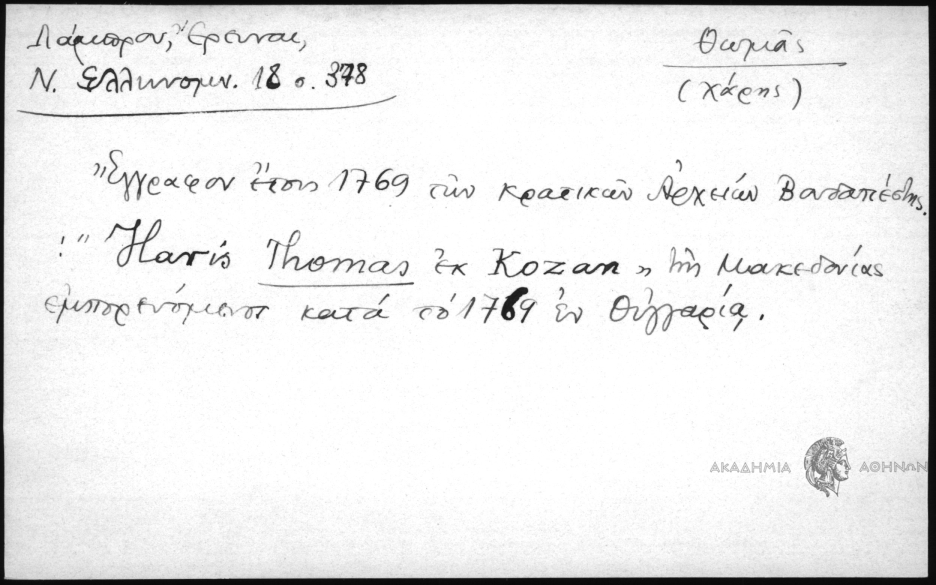 Λάμπρου, Ἔρευναι,
Ν. Ἑλληνομν. 18 σ. 378
Θωμᾶς
(Χάρης)
"Ἔγγραφον ἔτους 1769 τῶν κρατικῶν Ἀρχείων Βουδαπέστης.
:" Haris Thomas ἐκ Kozan" τῆς Μακεδονίας
ἐμπορευόμενος κατά τό 1769 ἐν Οὑγγαρίᾳ.
ΑΚΑΔΗΜΙΑ ΑΘΗΝΩΝ